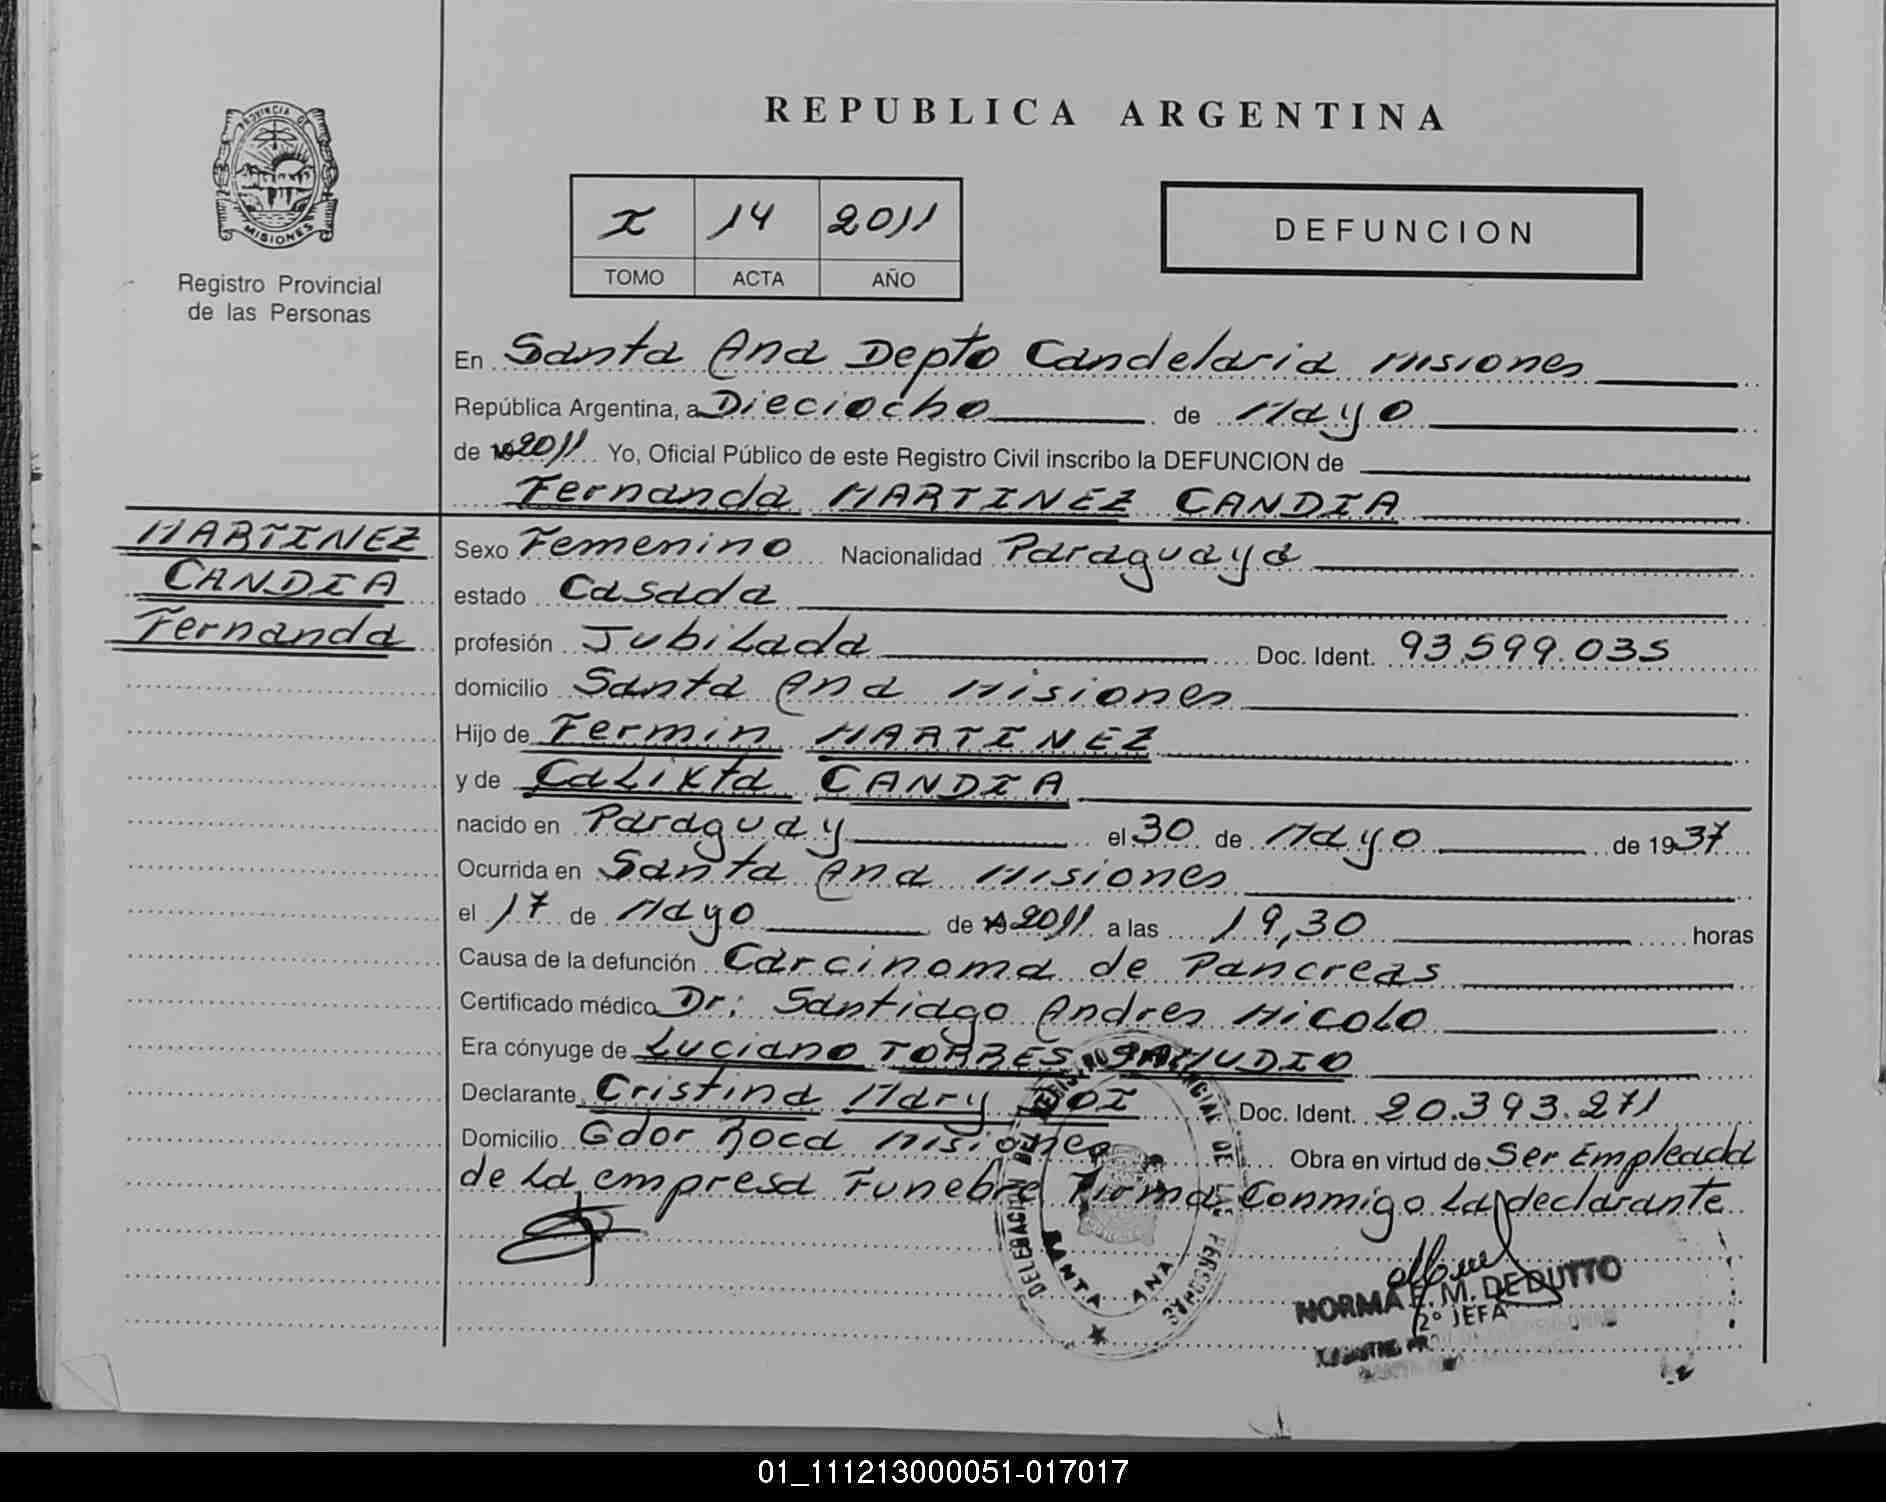 REPUBLICA ARGENTINA
PROVINCIA DE
MISIONES
Registro Provincial
de las Personas
I 14 2011
TOMO ACTA AÑO
DEFUNCION
En Santa Ana Depto Candelaria Misiones
República Argentina, a Dieciocho de Mayo
de 19 2011 Yo, Oficial Público de este Registro Civil inscribo la DEFUNCION de
Fernanda MARTINEZ CANDIA
MARTINEZ
CANDIA
Fernanda
Sexo Femenino Nacionalidad Paraguaya
estado Casada
profesión Jubilada Doc. Ident. 93.599.035
domicilio Santa Ana Misiones
Hijo de Fermin MARTINEZ
y de Calixta CANDIA
nacido en Paraguay el 30 de Mayo de 1937
Ocurrida en Santa Ana Misiones
el 17 de Mayo de 19 2011 a las 19,30 horas
Causa de la defunción Carcinoma de Pancreas
Certificado médico Dr: Santiago Andres Nicolo
Era cónyuge de Luciano TORRES SAMUDIO
Declarante Cristina Mary Doc. Ident. 20.393.271
Domicilio Gdor Roca Misiones Obra en virtud de Ser Empleada
de la empresa Funebre Firma Conmigo la declarante
DELEGACION DEL REGISTRO PROVINCIAL DE LAS PERSONAS
SANTA ANA
NORMA E. M. DE DUTTO
2º JEFA
01_111213000051-017017